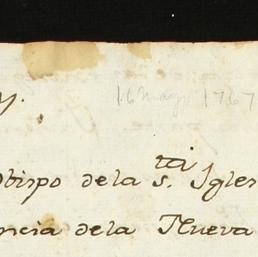 16 mayo 1767
y.
Obispo dela s.ta Igles
ncia dela Nueva